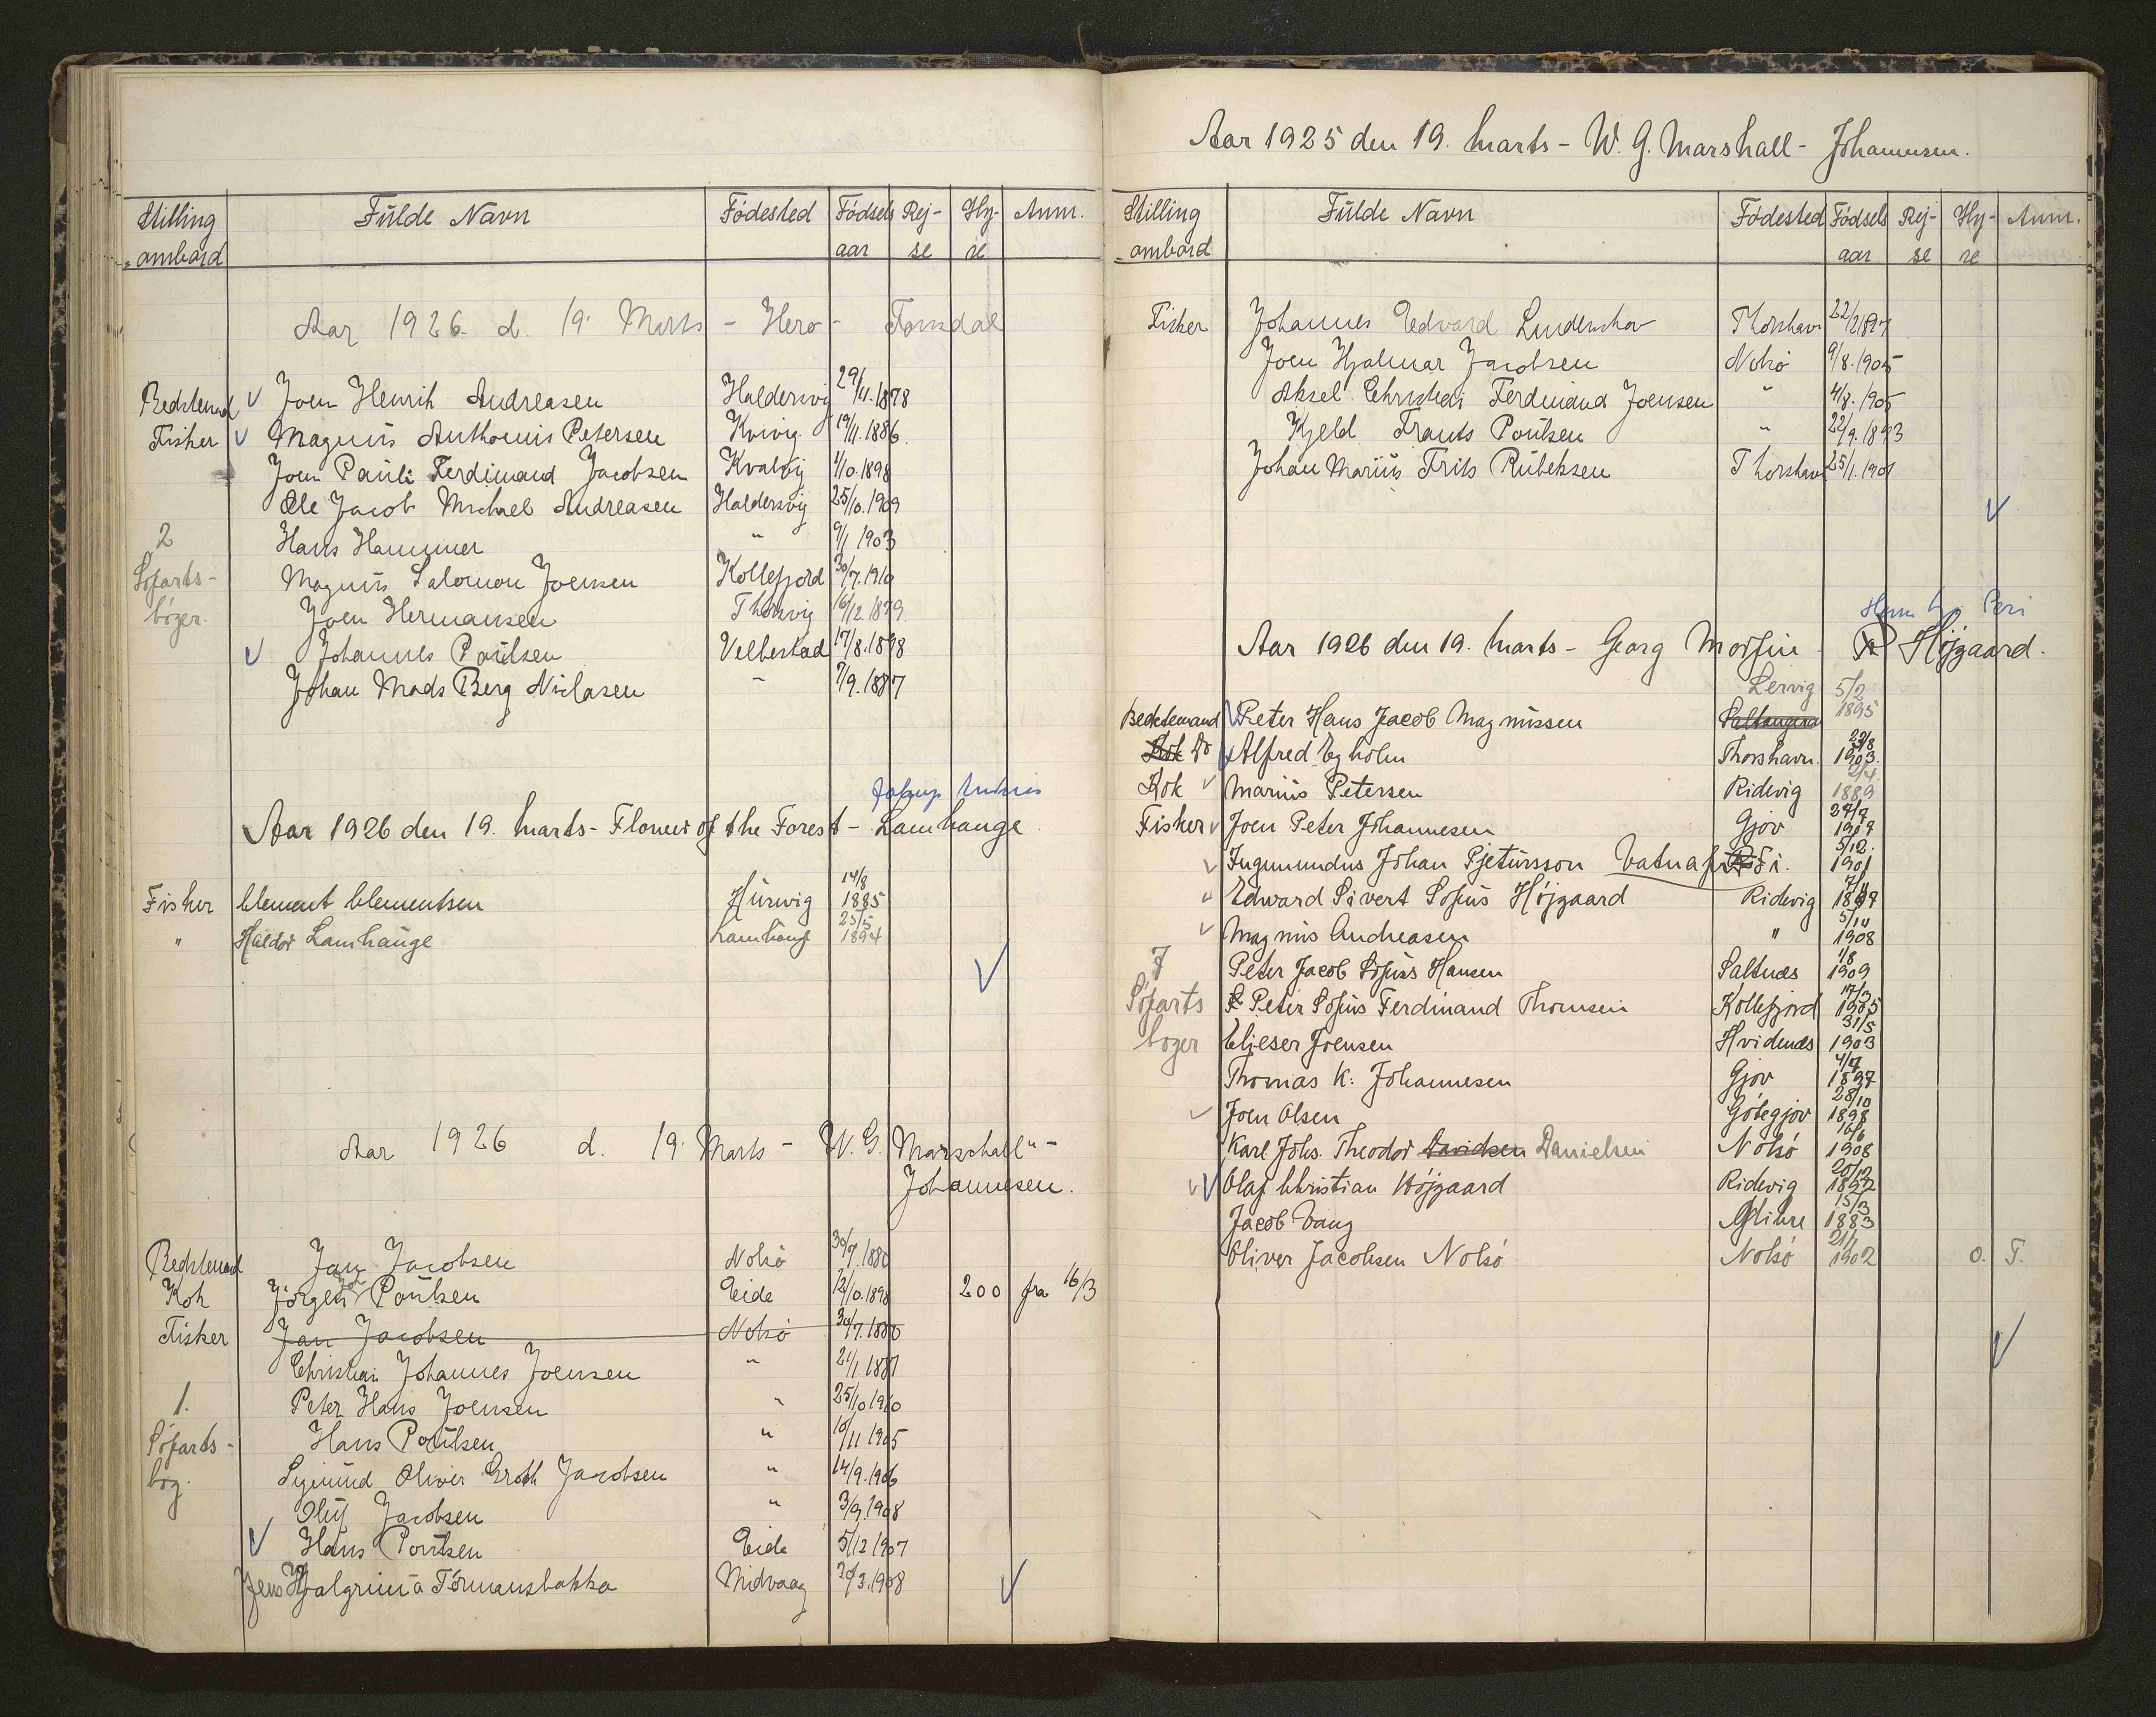 Stilling ombord Fülde Navn Födested Födsels aar Rej- se Hy- re Anm.
Aar 1926. d. 19. Marts - Hero -
Bedstemand V Joen Henrik Andreasen Haldersvig 29/11.1878
Fisker V Magnüs Anthonius Petersen Kvivig 19/11.1886.
Joen Pauli Ferdinand Jacobsen Kvalvig 1/10.1898
Ole Jacob Michael Andreasen Haldersvig 25/10.1909
2 Hans Hammer " 9/1 1903
Söfarts- Magnüs Salomon Joensen Kollefjord 30/7.1910
böger. Joen Hermansen Thorsvig 16/12.1879.
V Johannes Poülsen Velbestad 17/8.1898
Johan Mads Berg Niclasen " 7/9.1887
Aar 1926 den 19. Marts - Flower of the Forest - Lamhauge
Fisker Clement Clementsen Hüsevig 14/8 1885
" Haldor Lamhaüge Lamhaüg 25/5 1894
V
Aar 1926 d. 19. Marts - W. G. Marschall" -
Johannesen.
Bedstemand Jan Jacobsen Nolsö 30/7.1880
Kok Jörgen Joh Poülsen Eide 12/10.1898 200 fra 16/3
Fisker Jan Jacobsen Nolsö 30/7.1880
Christian Johannes Joensen " 21/1.1887
1. Peter Hans Joensen " 25/10 1910
Söfarts- Hans Poülsen " 10/11 1905
bog. Sigmünd Oliver Groth Jacobsen " 14/9.1906
Olüf Jacobsen " 3/9.1908
V Hans Poülsen Eide 5/12 1907
Jens Hjalgrim á Tórmansbakka Midvaag 20/3.1908 V
Aar 1925 den 19. Marts - W. G. Marshall - Johannesen.
Stilling ombord Fülde Navn Födested Födsels aar Rej- se Hy- re Anm.
Fisker Johannes Edvard Lindenskov Thorshavn 22/2 1897
Joen Hjalmar Jacobsen Nolsö 9/8.1905
Aksel Christian Ferdinand Joensen " 4/8.1905
Kjeld Frants Poülsen " 22/9.1893
Johan Mariüs Frits Rübeksen Thorshavn 25/1.1901
V
Aar 1926 den 19. Marts - Georg Höjgaard.
Lervig 5/2
Bedstemand V Peter Hans Jacob Magnüssen 1895
Kok Do V Alfred Egholm Thorshavn. 23/8 1903.
Kok V Mariüs Petersen Ridevig 2/4 1889
Fisker V Joen Peter Johannesen Gjov 27/7 1907
V Ingumundus Johan Pjetursson Vatnafirði. 5/12. 1901
V Edward Sivert Sofüs Höjgaard Ridevig 7/11 1898
V Magnüs Andreasen " 5/10 1908
7 Peter Jacob Sofüs Hansen Saltnæs 1/8 1909
Söfarts Peter Sofüs Ferdinand Thomsen Kollefjord 17/3 1905
böger Elieser Joensen Hvidenæs 31/5 1903
Thomas K. Johannesen Gjov 4/7 1897
V Joen Olsen Götegjov 28/10 1898
Karl Johs. Theodor Davidsen Danielsen Nolsö 16/6 1908
V V Olaf Christian Höjgaard Ridevig 20/12 1892
Jacob Vang Glibre 15/3 1883
Oliver Jacobsen Nolsö Nolsö 21/1 1902 O. T.
V